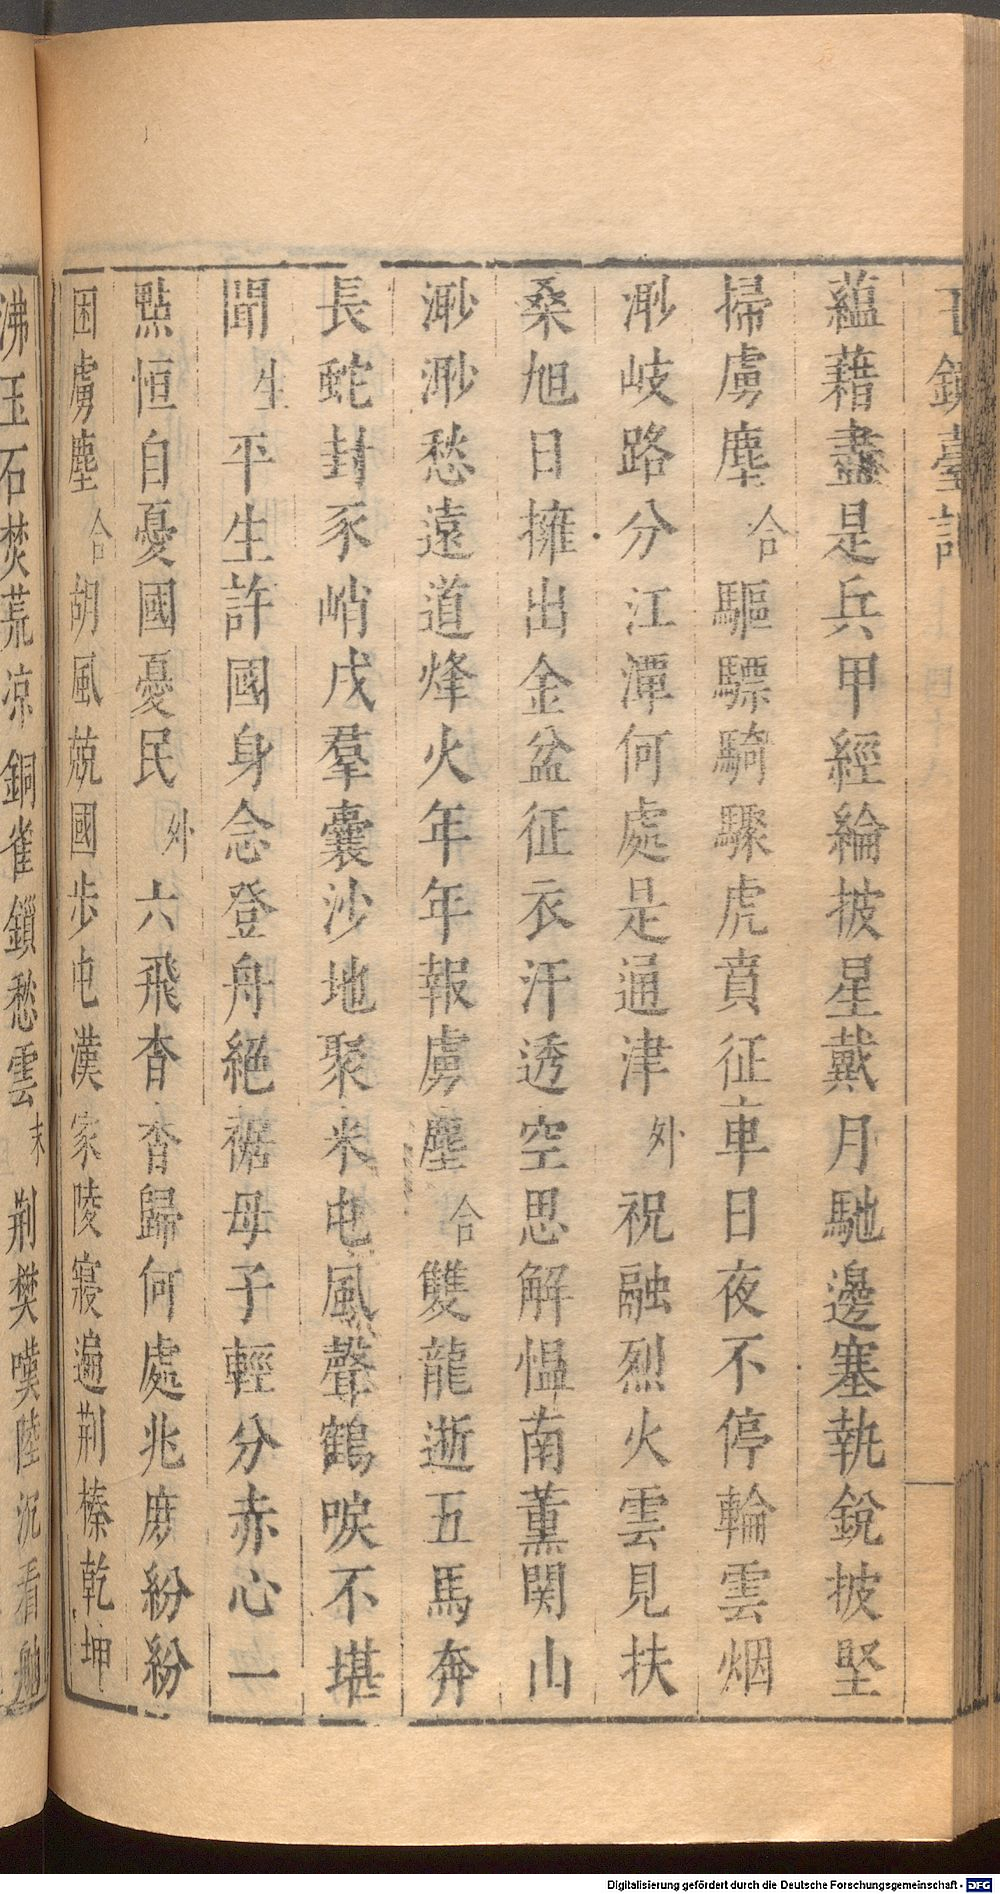 蘊藉盡是兵甲經綸披星戴月馳邊塞執銳披堅
掃虜塵 合 驅驃騎驟虎賁征車日夜不停輪雲烟
渺岐路分江潭何處是通津 外 祝融烈火雲見扶
桑旭日擁出金盆征衣汗透空思解慍南薰関山
渺渺愁遠道烽火年年報虜塵 合 雙龍逝五馬奔
長蛇封豕峭戌羣囊沙地聚米屯風聲鶴唳不堪
聞 生 平生許國身念登舟絕裾母子輕分赤心一
點恒自憂國憂民 外 六飛杳杳歸何處兆庻紛紛
困虜塵 合 胡風兢國步屯漢家陵寢遍荆榛乾坤
沸玉石焚荒凉銅雀鎖愁雲 末 荆樊嘆陸沉看
Digitalisierung gefördert durch die Deutsche Forschungsgemeinschaft - DFG